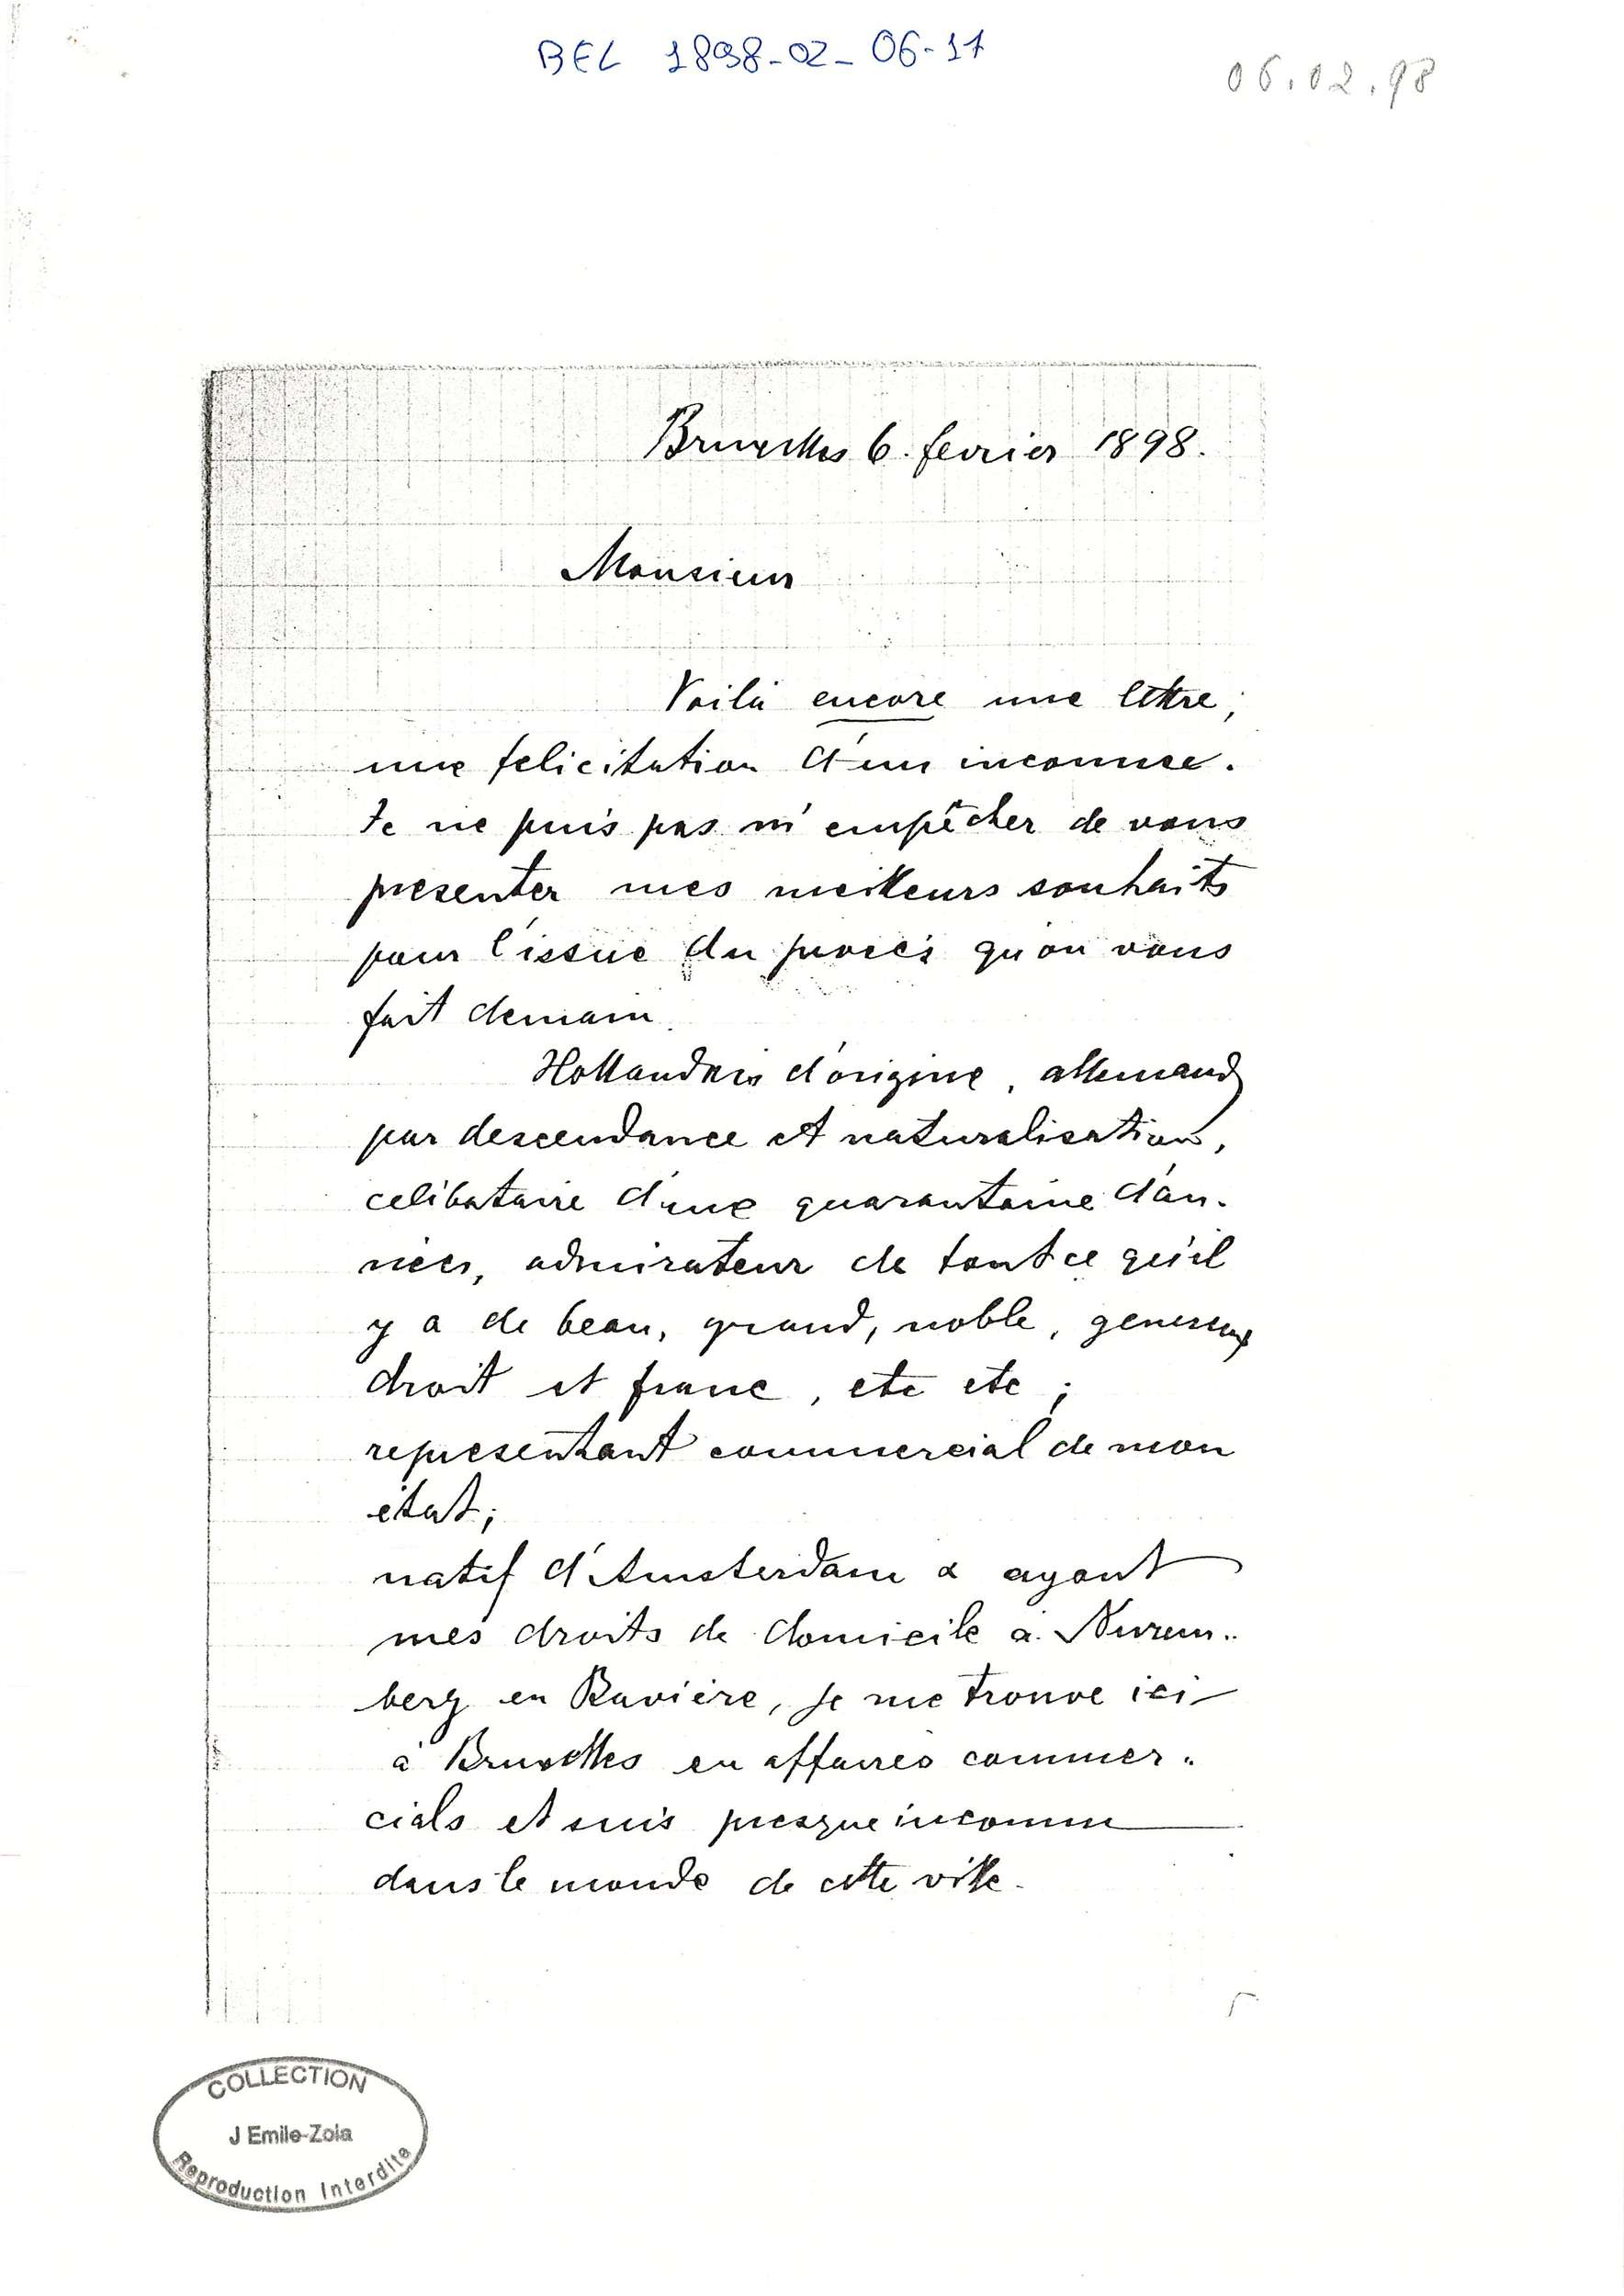 BEL 1898-02-06-11
06.02.98
Bruxelles 6. fevrier 1898.
Monsieur
Voilà encore une lettre,
une felicitation d'un inconnue.
Je ne puis pas m'empêcher de vous
presenter mes meilleurs souhaits
pour l'issue du procès qu'on vous
fait demain.
Hollandais d'origine, allemand
par descendance et naturalisation,
celibataire d'une quarantaine d'an-
nées, admirateur de tout ce qu'il
y a de beau, grand, noble, genereux
droit et franc, etc etc ;
representant commercial de mon
état;
natif d'Amsterdam & ayant
mes droits de domicile à Nurem-
berg en Bavière, je me trouve ici
à Bruxelles en affaires commer-
cials et suis presque inconnu
dans le monde de cette ville.
COLLECTION
J Emile-Zola
Reproduction Interdite